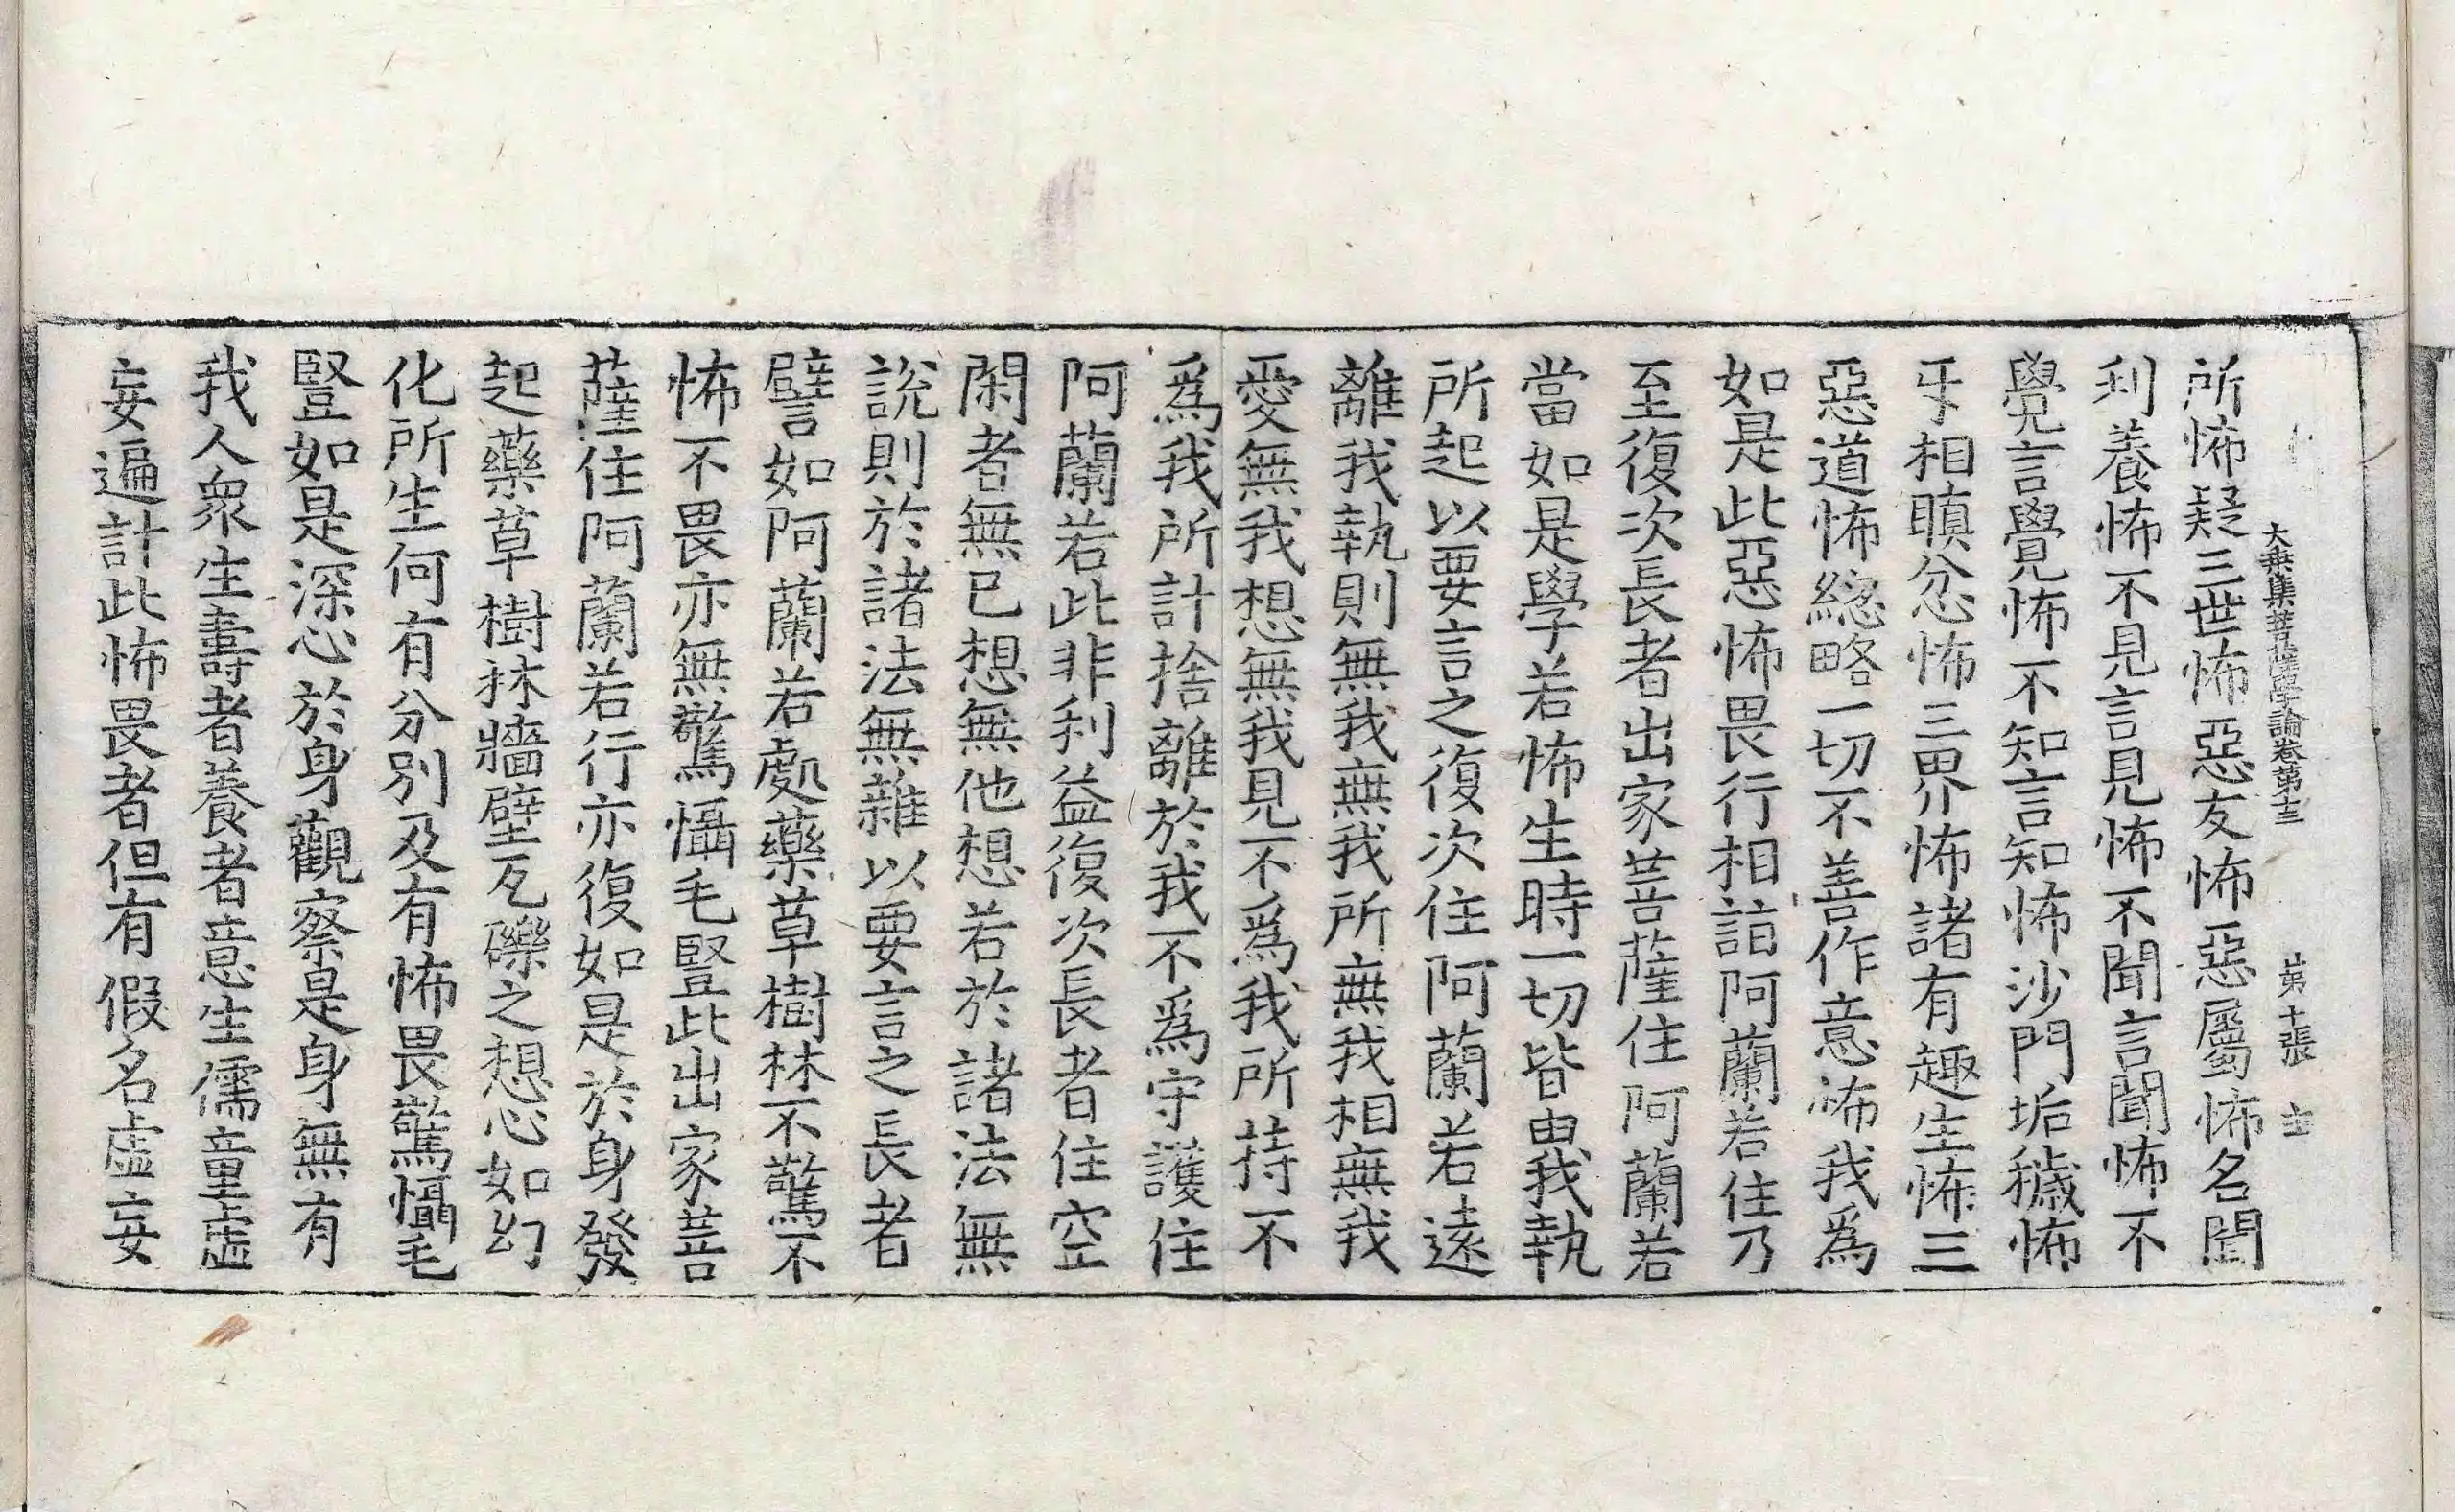 大乘集菩薩學論卷第十三 第十張 主
所怖疑三世怖惡友怖惡屬怖名聞
利養怖不見言見怖不聞言聞怖不
覺言覺怖不知言知怖沙門垢穢怖
㸦相瞋忿怖三界怖諸有趣生怖三
惡道怖緫略一切不善作意怖我爲
如是此惡怖畏行相詣阿蘭若住乃
至復次長者出家菩薩住阿蘭若
當如是學若怖生時一切皆由我執
所起以要言之復次住阿蘭若遠
離我執則無我無我所無我相無我
愛無我想無我見不爲我所持不
爲我所計捨離於我不爲守護住
阿蘭若此非利益復次長者住空
閑者無已想無他想若於諸法無
說則於諸法無雜以要言之長者
譬如阿蘭若處藥草樹林不驚不
怖不畏亦無驚懾毛豎此出家菩
薩住阿蘭若行亦復如是於身發
起藥草樹林牆壁瓦礫之想心如幻
化所生何有分別及有怖畏驚懾毛
豎如是深心於身觀察是身無有
我人衆生壽者養者意生儒童虛
妄遍計此怖畏者但有假名虛妄